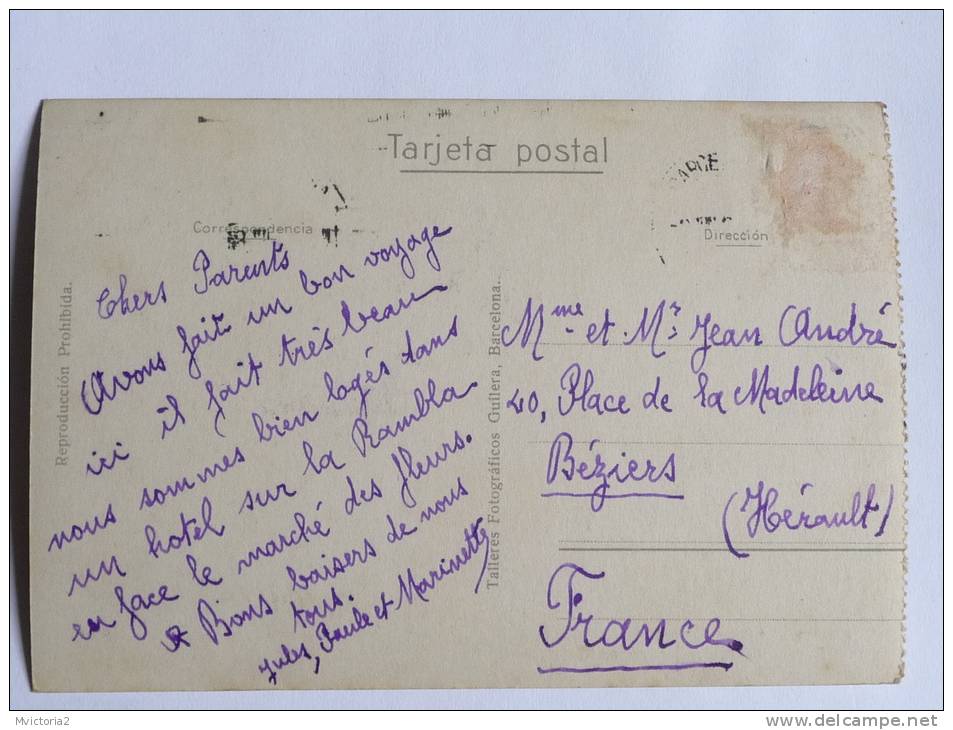 Tarjeta postal
Correspondencia
Dirección
Reproducción Prohibida.
Chers Parents
Avons fait un bon voyage
ici il fait très beau
nous sommes bien logés dans
un hotel sur la Rambla
en face le marché des fleurs.
Bons baisers de nous
tous.
Jules, Paule et Marinette
Talleres Fotográficos Guilera, Barcelona.
Mme et Mr Jean André
40, Place de la Madeleine
Béziers
(Hérault)
France
Mvictoria2
www.delcampe.net